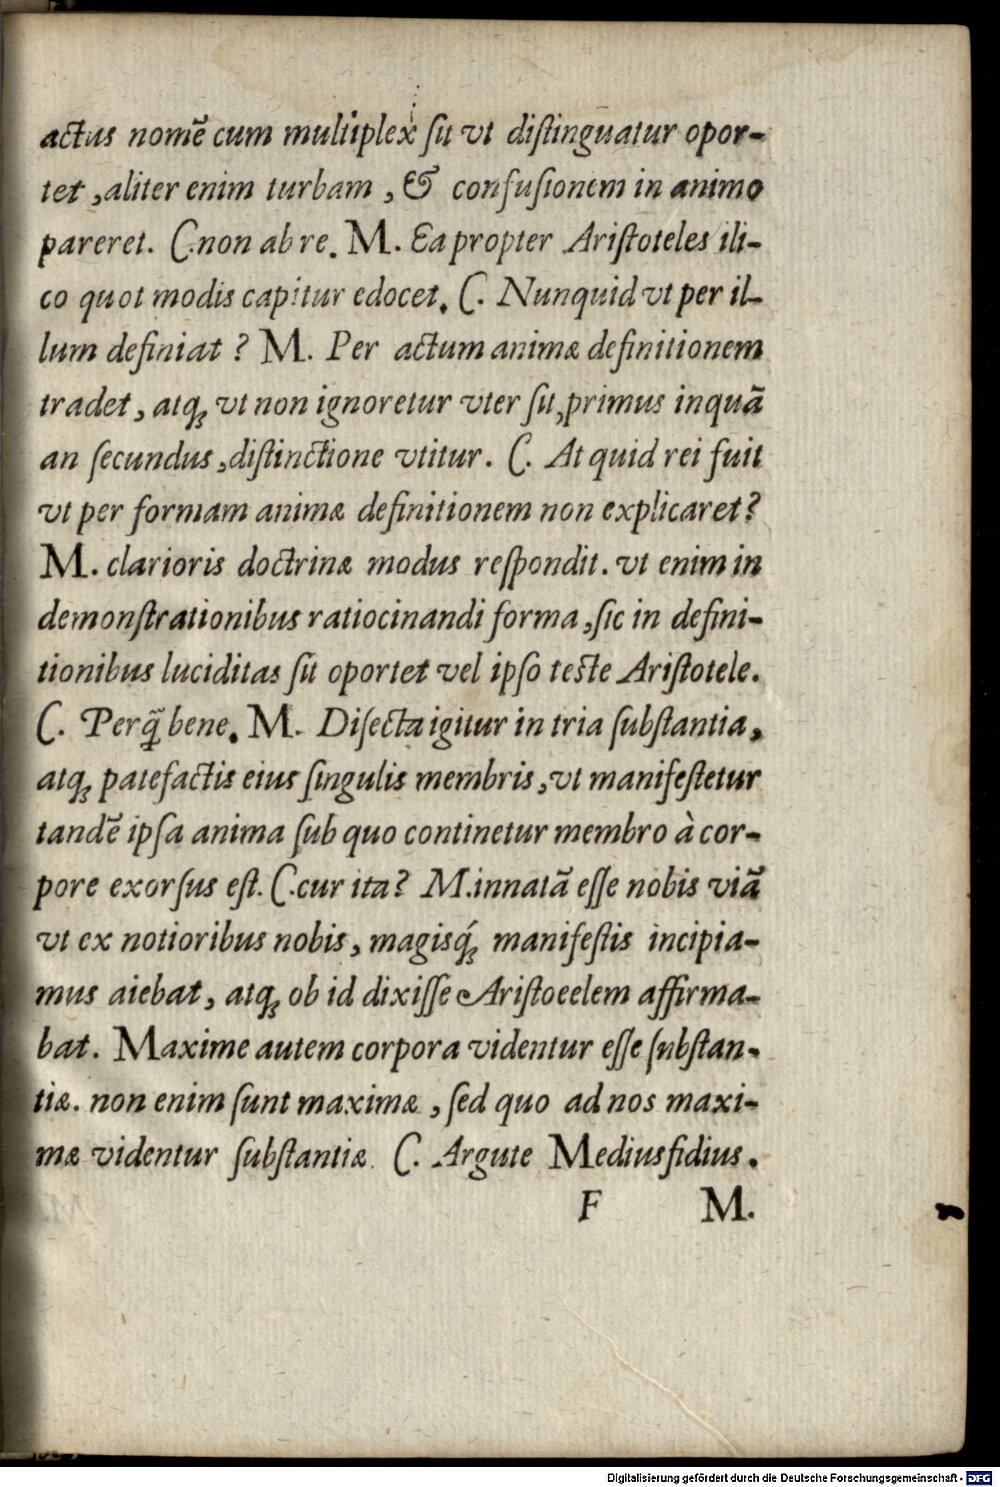 actus nomẽ cum multiplex sit vt distinguatur opor-
tet, aliter enim turbam, & confusionem in animo
pareret. C. non ab re. M. Eapropter Aristoteles ili-
co quot modis capitur edocet. C. Nunquid vt per il-
lum definiat? M. Per actum animæ definitionem
tradet, atq; vt non ignoretur vter sit, primus inquã
an secundus, distinctione vtitur. C. At quid rei fuit
vt per formam animæ definitionem non explicaret?
M. clarioris doctrinæ modus respondit. vt enim in
demonstrationibus ratiocinandi forma, sic in defini-
tionibus luciditas sit oportet vel ipso teste Aristotele.
C. Perq̃ bene. M. Disecta igitur in tria substantia,
atq; patefactis eius singulis membris, vt manifestetur
tandẽ ipsa anima sub quo continetur membro à cor-
pore exorsus est. C. cur ita? M. innatã esse nobis viã
vt ex notioribus nobis, magisq́; manifestis incipia-
mus aiebat, atq; ob id dixisse Aristoeelem affirma-
bat. Maxime autem corpora videntur esse substan-
tiæ. non enim sunt maximæ, sed quo ad nos maxi-
mæ videntur substantiæ. C. Argute Mediusfidius.
F M.
Digitalisierung gefördert durch die Deutsche Forschungsgemeinschaft - DFG